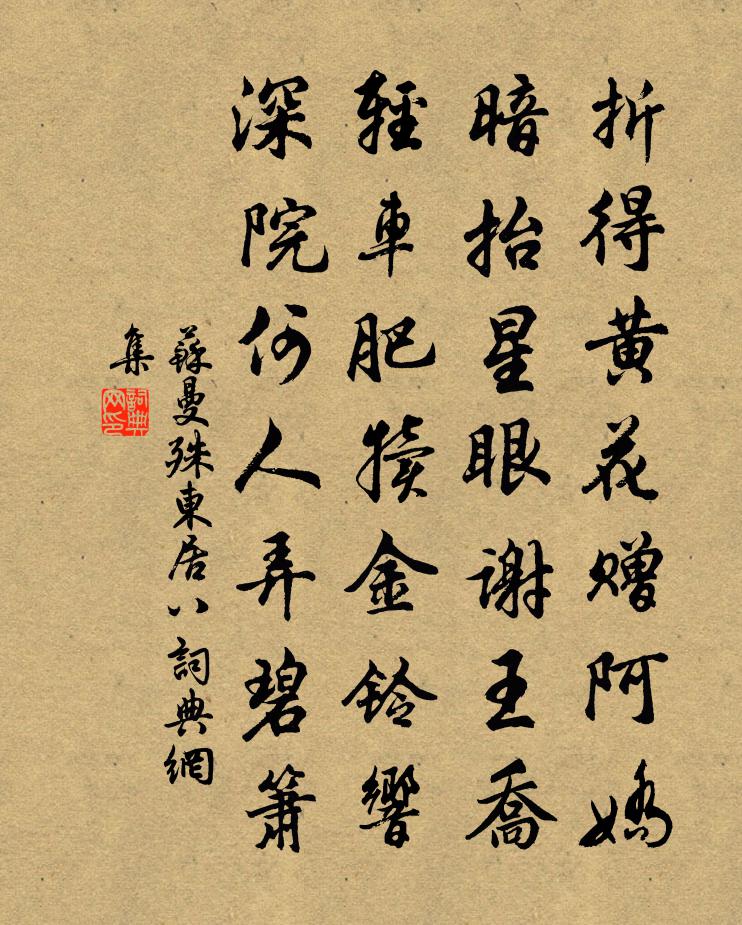 折得黃花贈阿嬌
暗抬星眼謝王喬
輕車肥犢金鈴響
深院何人弄碧簫
蘇曼殊東居八詞典網
集
詞典
網印